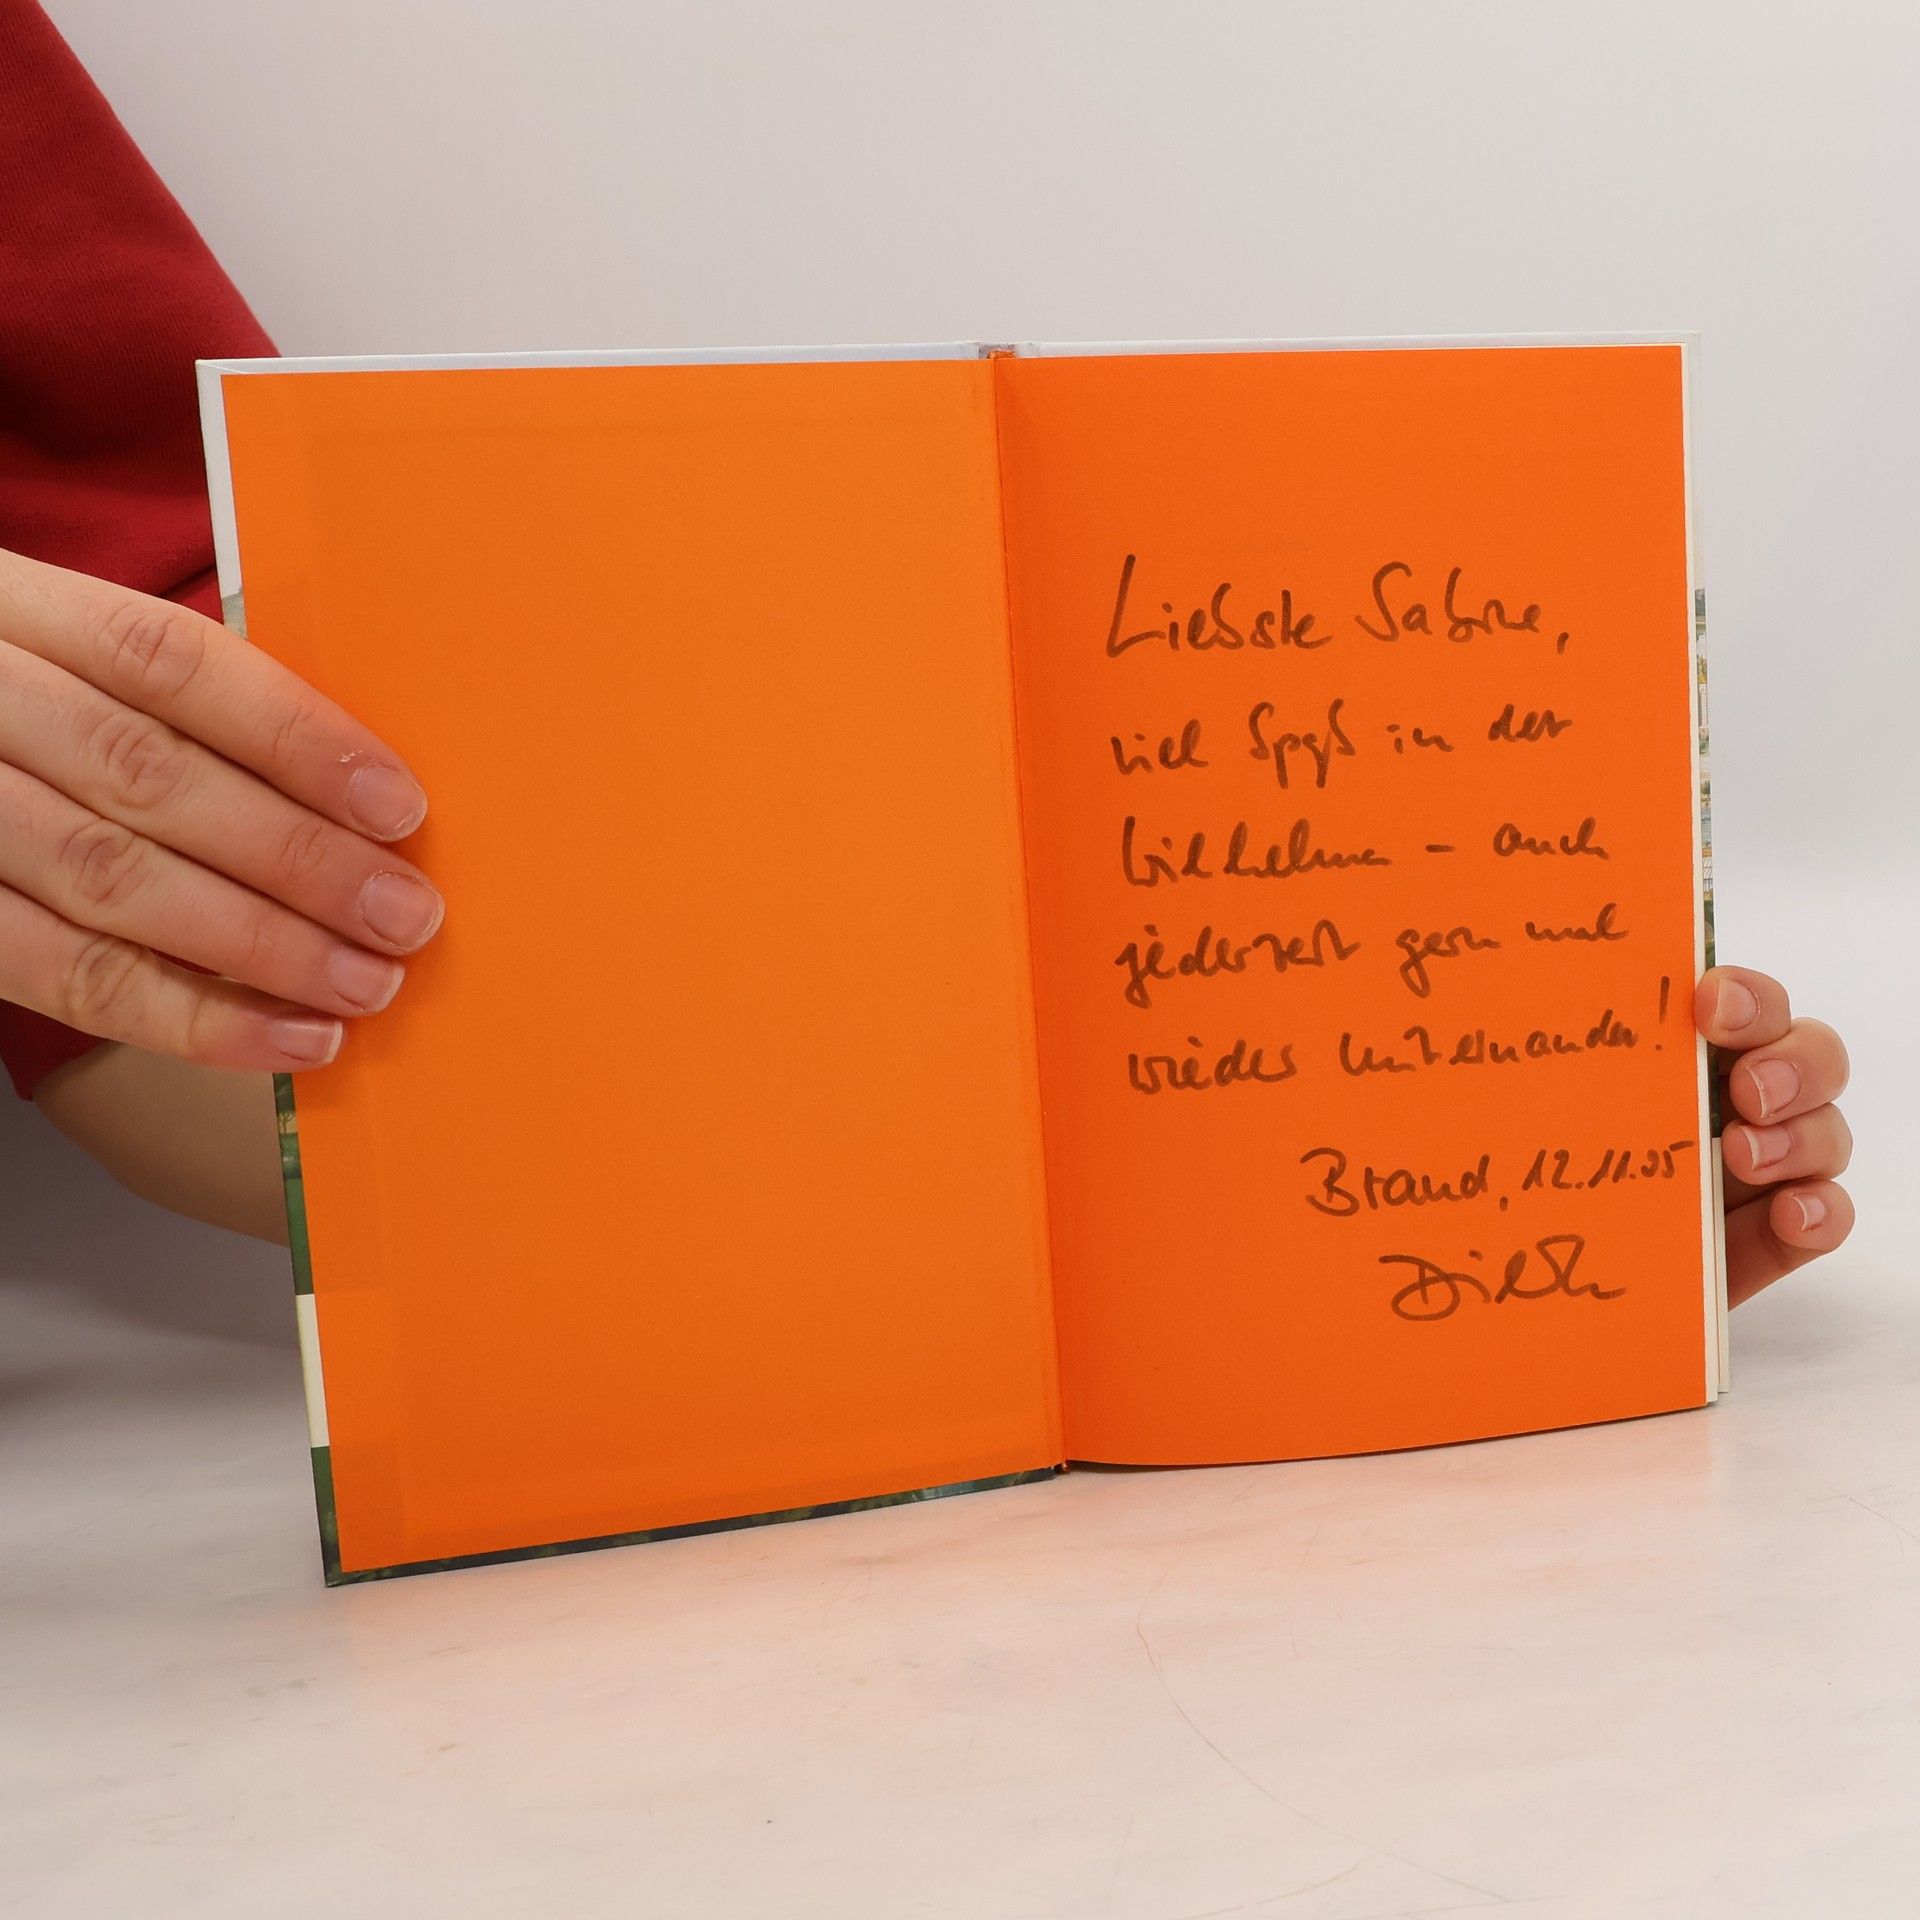 Liebste Sabine,
viel Spaß in der
Wilhelma – auch
jederzeit gern mal
wieder miteinander!
Brand, 12.11.05
Dirk